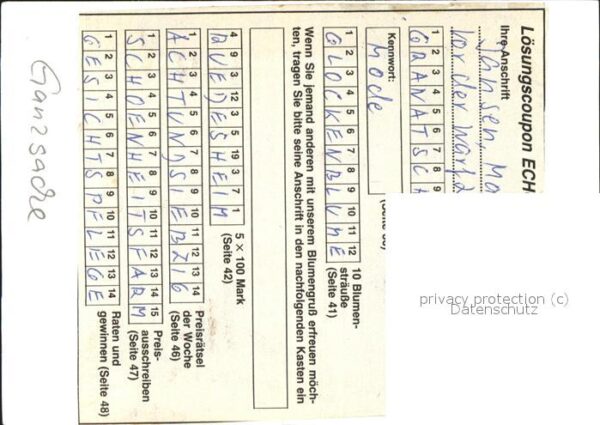 Lösungscoupon ECH
Ihre Anschrift
Vor der Warf 2
1 2 3 4 5 6 7 8 9
GRANATSCH
Kennwort:
Mode
1 2 3 4 5 6 7 8 9 10 11 12
GLOCKENBLUME
10 Blumen-
sträuße
(Seite 41)
Wenn Sie jemand anderen mit unserem Blumengruß erfreuen möch-
ten, tragen Sie bitte seine Anschrift in den nachfolgenden Kasten ein
4 9 3 12 3 5 19 3 7 1
RUEDESHEIM
5 × 100 Mark
(Seite 42)
1 2 3 4 5 6 7 8 9 10 11 12 13 14
ACHTUNDSIEBZIG
Preisrätsel
der Woche
(Seite 46)
1 2 3 4 5 6 7 8 9 10 11 12 13 14 15
SCHOENHEITSFARM
Preis-
ausschreiben
(Seite 47)
1 2 3 4 5 6 7 8 9 10 11 12 13 14
GESICHTSPFLEGE
Raten und
gewinnen (Seite 48)
Ganzsache
privacy protection (c)
Datenschutz